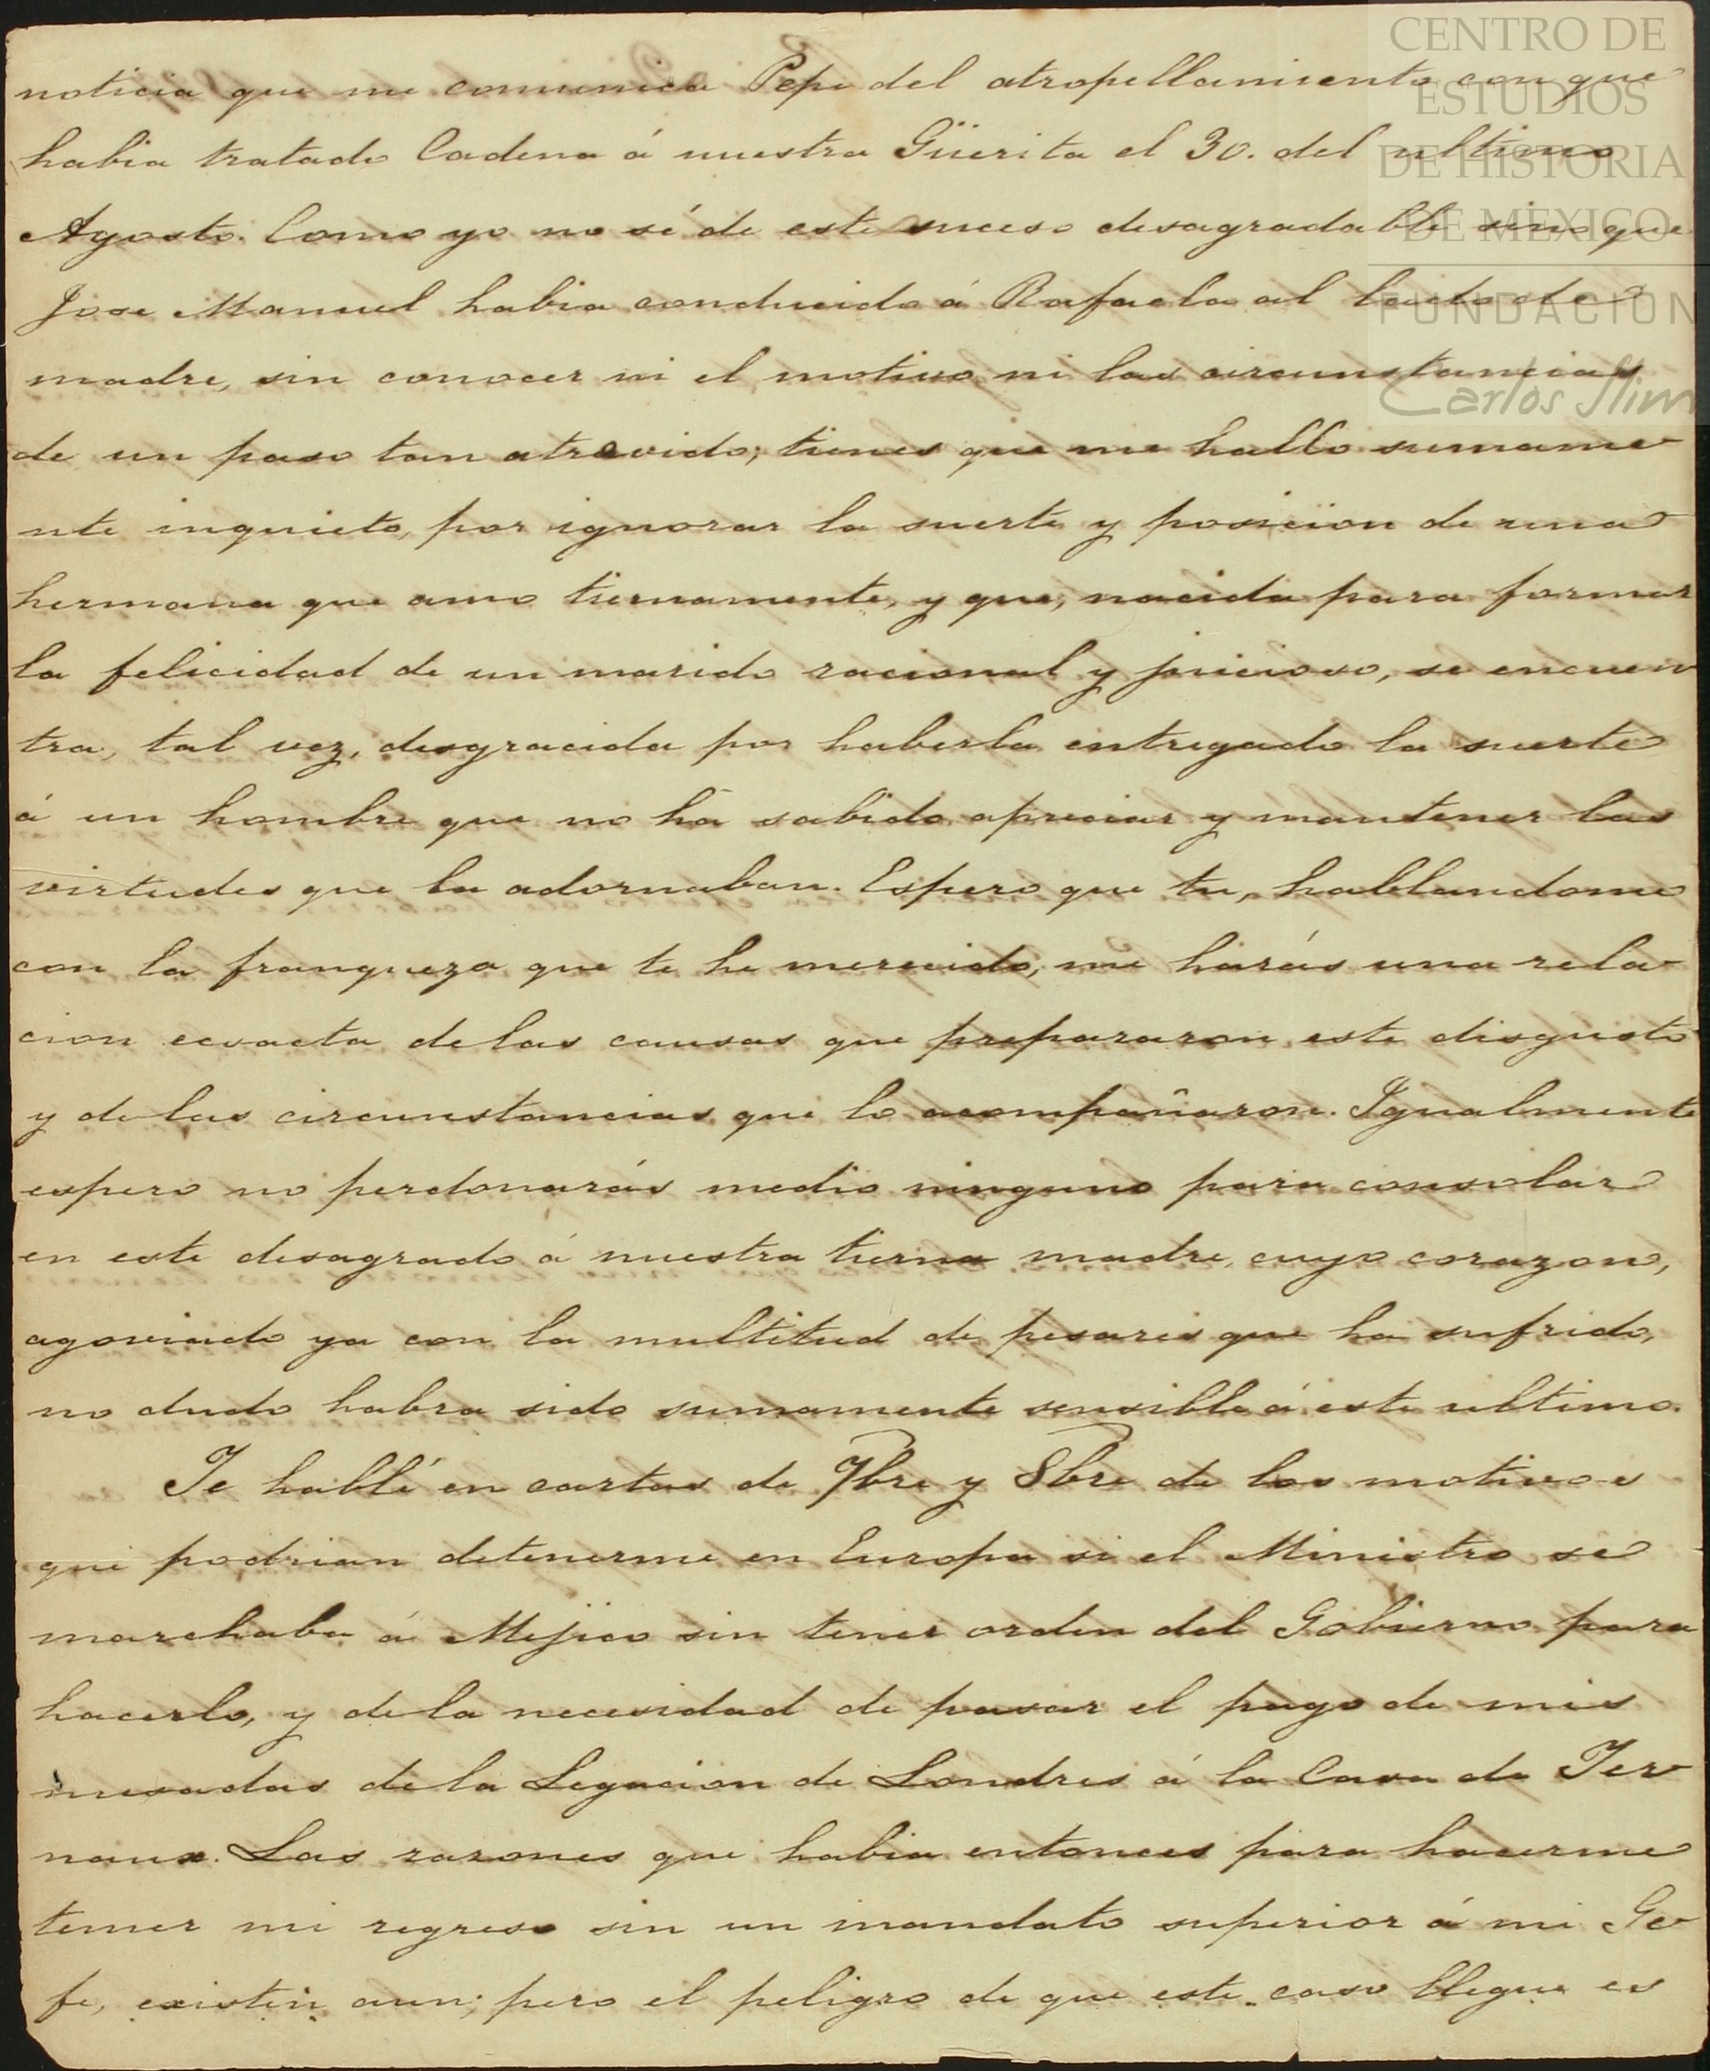 noticia que me comunica Pepe del atropellamiento con que
habia tratado Cadena á nuestra Güerita el 30. del ultimo
Agosto. Como yo no sé de este suceso desagradable sino que
Jose Manuel habia conducido á Rafaela al lado de
madre, sin conocer ni el motivo ni las circunstancias
de un paso tan atrevido; tienes que me hallo sumame
nte inquieto, por ignorar la suerte y posicion de una
hermana que amo tiernamente, y que, nacida para formar
la felicidad de un marido racional y juicioso, se encuen
tra, tal vez, desgracida por haberla entregado la suerte
á un hombre que no há sabido apreciar y mantener las
virtudes que la adornaban. Espero que tu, hablandome
con la franqueza que te he merecido, me harás una rela-
cion ecsacta de las causas que prepararon este disgusto
y de las circunstancias que lo acompañaron. Igualmente
espero no perdonarás medio ninguno para consolar
en este desagrado á nuestra tierna madre, cuyo corazon,
agoviado ya con la multitud de pesares que ha sufrido,
no dudo habra sido sumamente sensible á este ultimo.
Te hablé en cartas de 7bre y 8bre de los motivos
que podrian detenerme en Europa si el Ministro se
marchaba á Mejico sin tener orden del Gobierno para
hacerlo, y de la necesidad de pasar el pago de mis
mesadas de la Legacion de Londres á la Casa de Ter
naux. Las razones que habia entonces para hacerme
temer mi regreso sin un mandato superior á mi Ge
fe, existen aun; pero el peligro de que este caso llegue es
CENTRO DE
ESTUDIOS
DE HISTORIA
DE MÉXICO
FUNDACIÓN
Carlos Slim